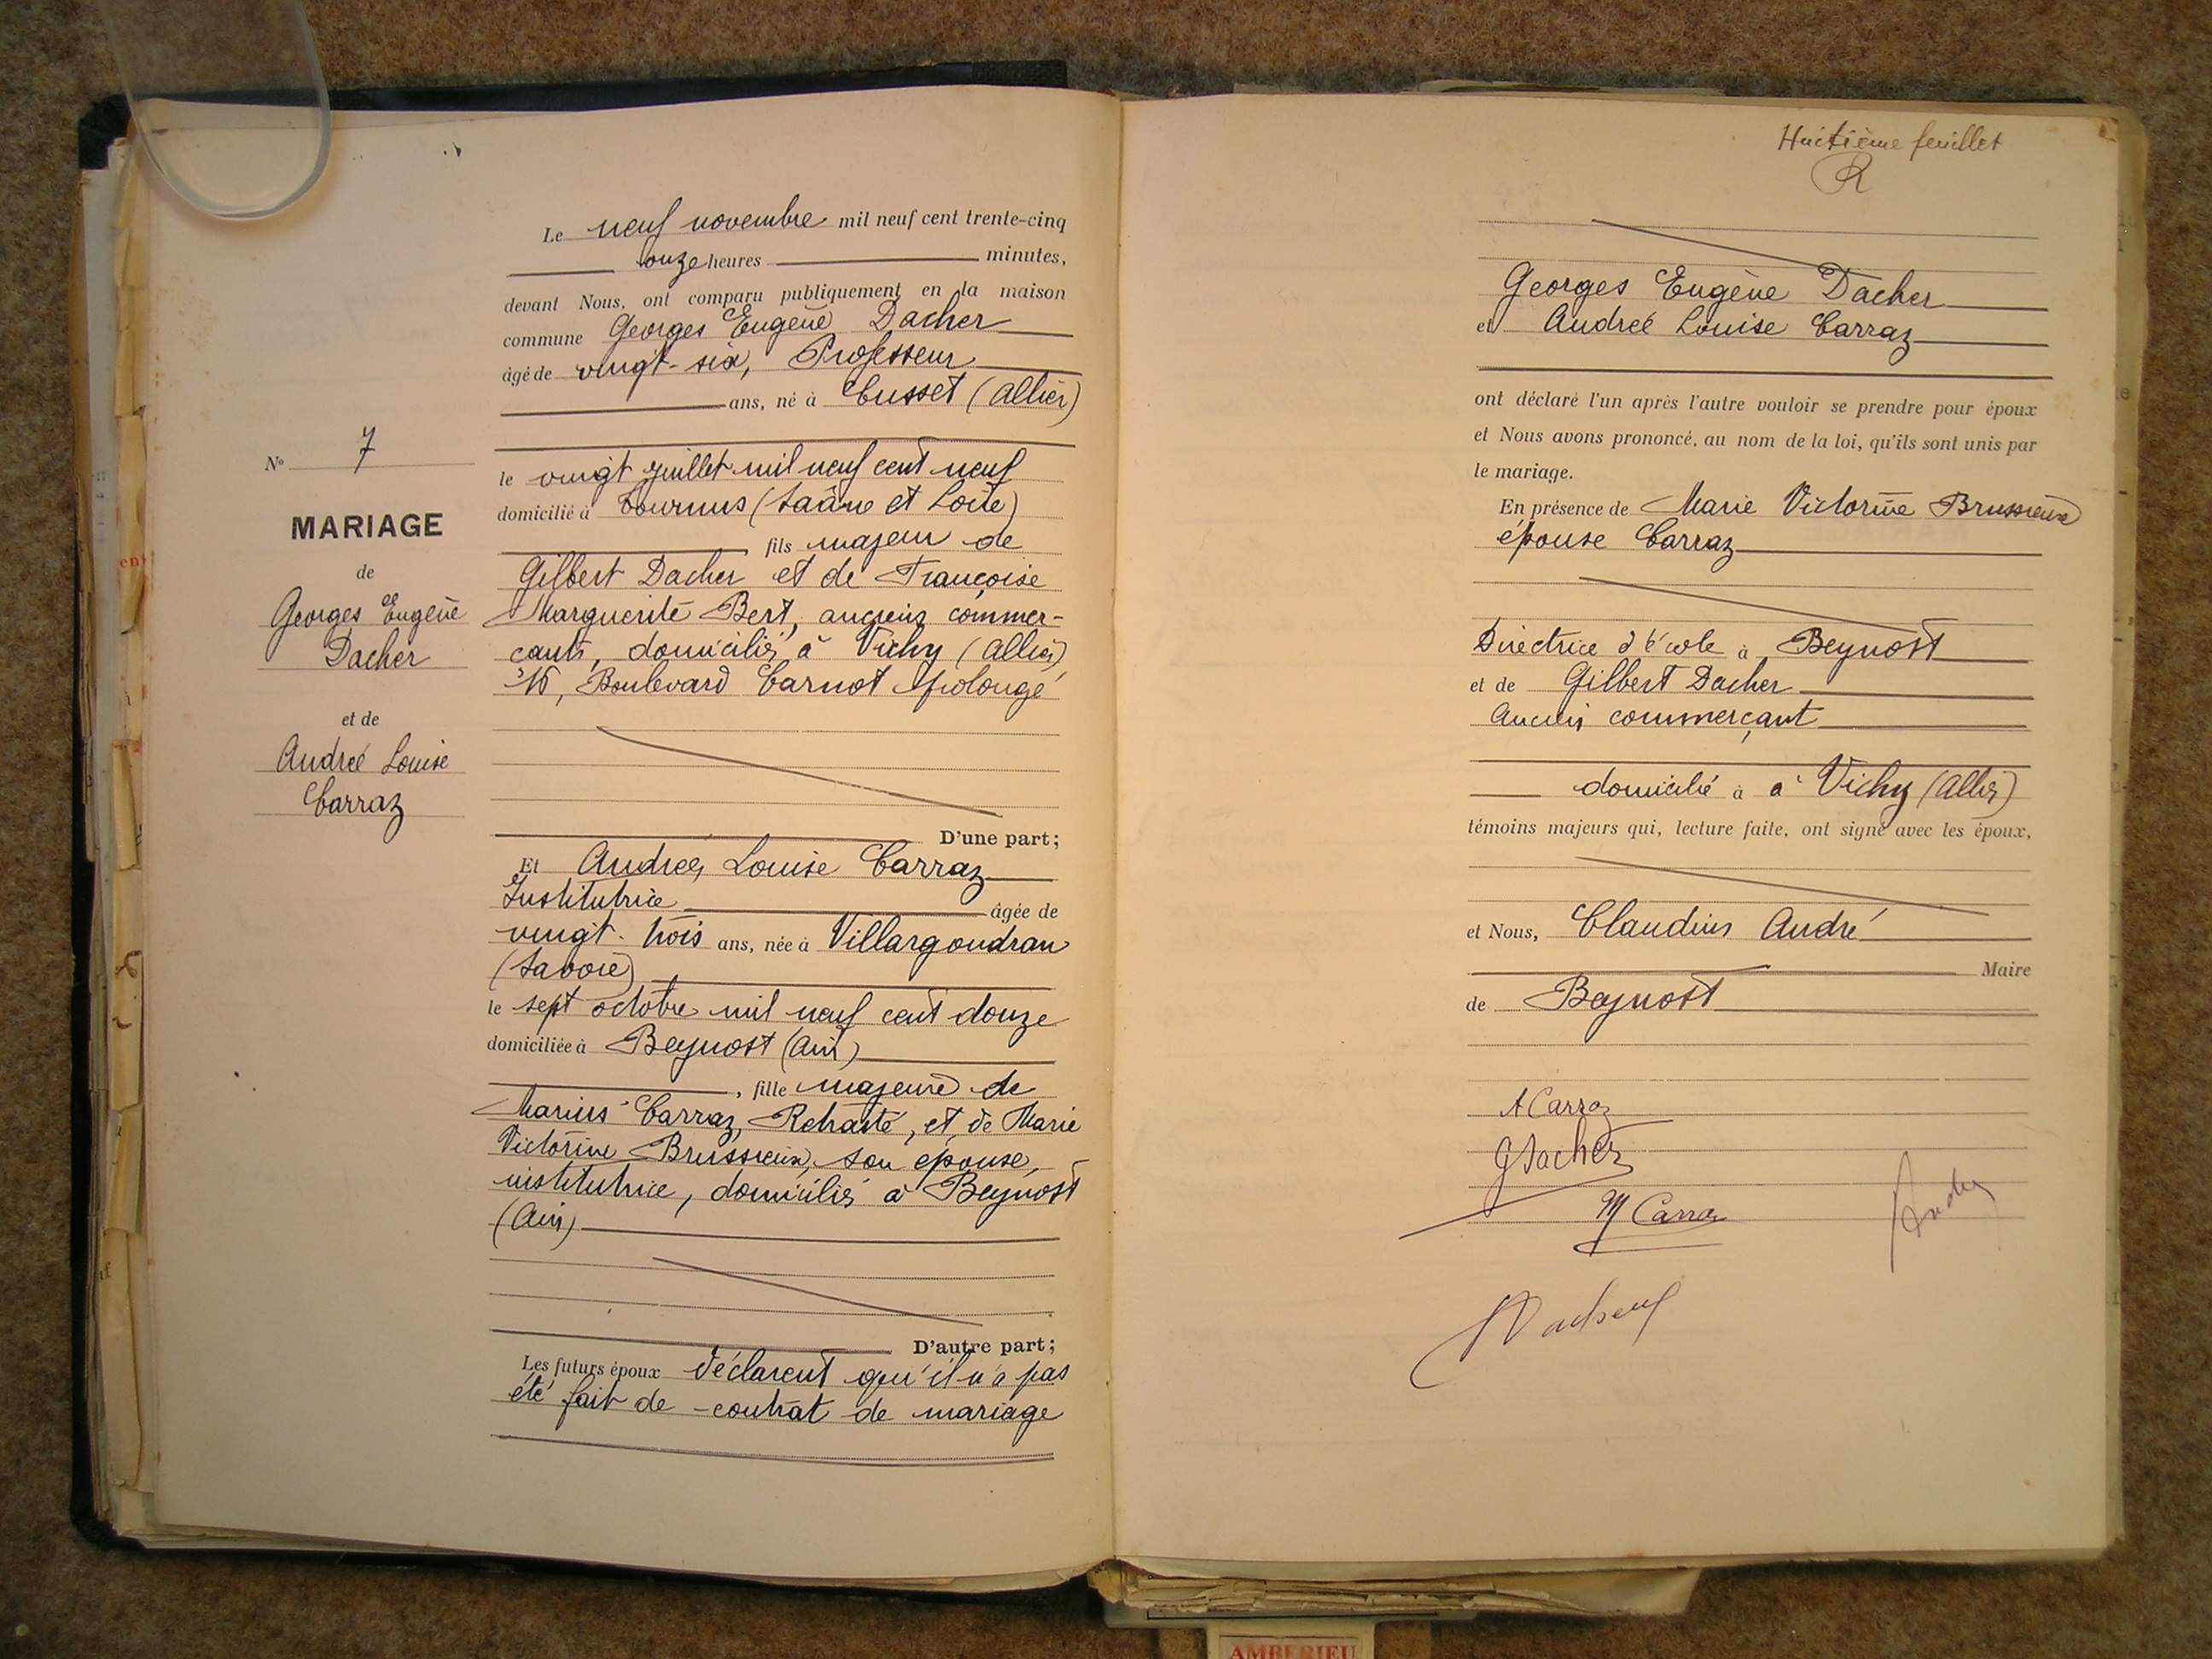 Le neuf novembre mil neuf cent trente-cinq
onze heures minutes,
devant Nous, ont comparu publiquement en la maison
commune Georges Eugène Dacher
âgé de vingt-six, Professeur
ans, né à Cusset (Allier)
le vingt juillet mil neuf cent neuf
domicilié à Tournus (Saône et Loire)
fils majeur de
Gilbert Dacher et de Françoise
Marguerite Bert, anciens commer-
çants, domiciliés à Vichy (Allier)
Boulevard Carnot prolongé
D'une part;
Et Andrée, Louise Carraz
Institutrice âgée de
vingt-trois ans, née à Villargondran
(Savoie)
le sept octobre mil neuf cent douze
domiciliée à Beynost (Ain)
, fille majeure de
Marius Carraz, Retraité, et de Marie
Victorine Brussieux, son épouse,
institutrice, domiciliés à Beynost
(Ain)
D'autre part;
Les futurs époux déclarent qu'il n'a pas
été fait de contrat de mariage
No 7
MARIAGE
de
Georges Eugène
Dacher
et de
Andrée Louise
Carraz
Huitième feuillet
R
Georges Eugène Dacher
et Andrée Louise Carraz
ont déclaré l'un après l'autre vouloir se prendre pour époux
et Nous avons prononcé, au nom de la loi, qu'ils sont unis par
le mariage.
En présence de Marie Victorine Brussieux
épouse Carraz
Directrice d'école à Beynost
et de Gilbert Dacher
Ancien commerçant
domicilié à à Vichy (Allier)
témoins majeurs qui, lecture faite, ont signé avec les époux,
et Nous, Claudius André
Maire
de Beynost
A Carraz
G Dacher
M Carraz
André
Dacher
AMBERIEU